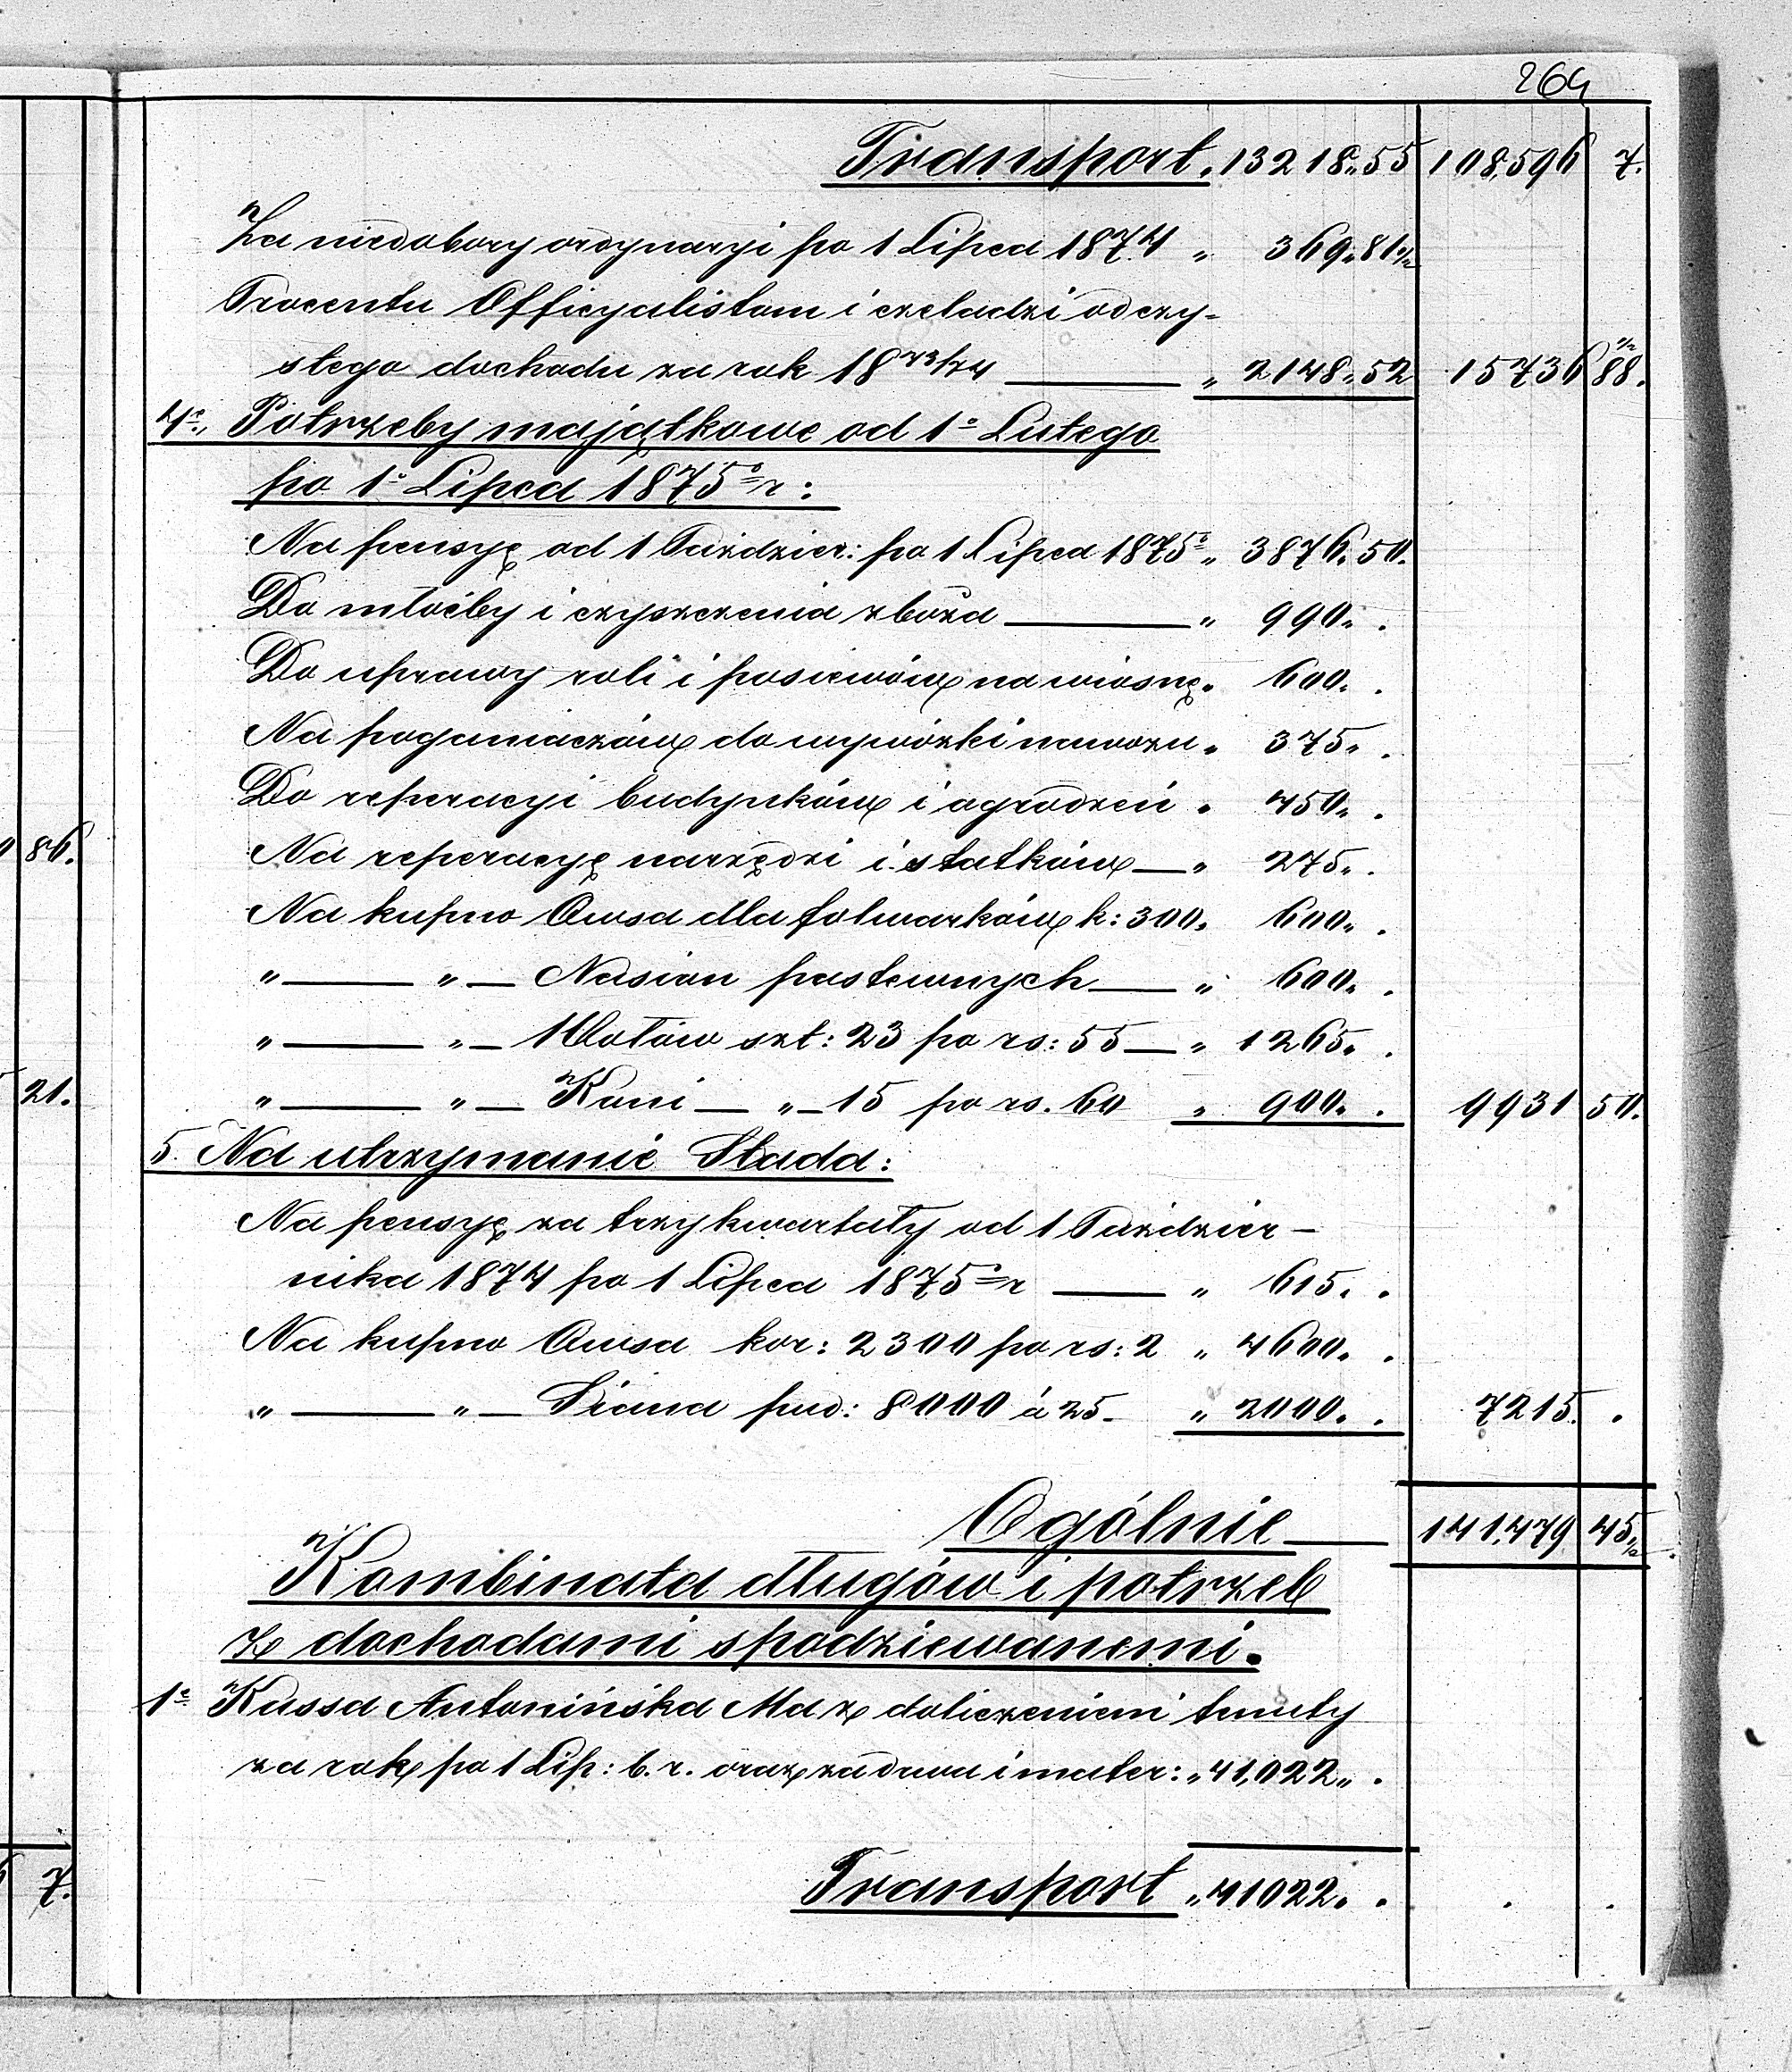 264
Transport. 13218„55 108,596 7.
Za niedobory ordynaryi po 1 Lipca 1874 „ 369„81½
Procentu Officyalistom i czeladzi od czy-
stego dochodu za rok 1873/74 — „ 2148„52 15736 88½.
4e., Potrzeby majątkowe od 1o Lutego
po 1o Lipca 1875o r:
Na pensyę od 1 Paździer: po 1 Lipca 1875o „ 3876„50.
Do młoćby i czyszczenia zboża — „ 990„ .
Do uprawy roli i posiewów na wiosnę „ 600„ .
Na poganiaczów do wywózki nawozu „ 375„ .
Do reperacyi budynków i ogrodzeń „ 450„ .
Na reperacyę narzędzi i statków — „ 275„ .
Na kupno Owsa dla folwarków k: 300„ 600„ .
„ — „ — Nasion pastewnych — „ 600„ .
„ — „ — Wołów szt: 23 po rs: 55 — „ 1265„ .
„ — „ — Koni — „ — 15 po rs. 60 „ 900„ . 9931 50.
5. Na utrzymanie Stada:
Na pensyę za trzy kwartały od 1 Paździer-
nika 1874 po 1 Lipca 1875o r — „ 615„ .
Na kupno Owsa kor: 2300 po rs: 2 „ 4600„ .
„ — „ — Siana pud: 8000 à 25 - „ 2000„ . 7215. .
Ogólnie — 141,479 45½.
Kombinata długów i potrzeb
z dochodami spodziewanemi.
1e Kassa Antonińska Ma z doliczeniem tenuty
za rok po 1 Lip: b. r. oraz za drwa i mater: „ 41,022„ .
Transport „ 41022„ . . .
86.
21.
7.